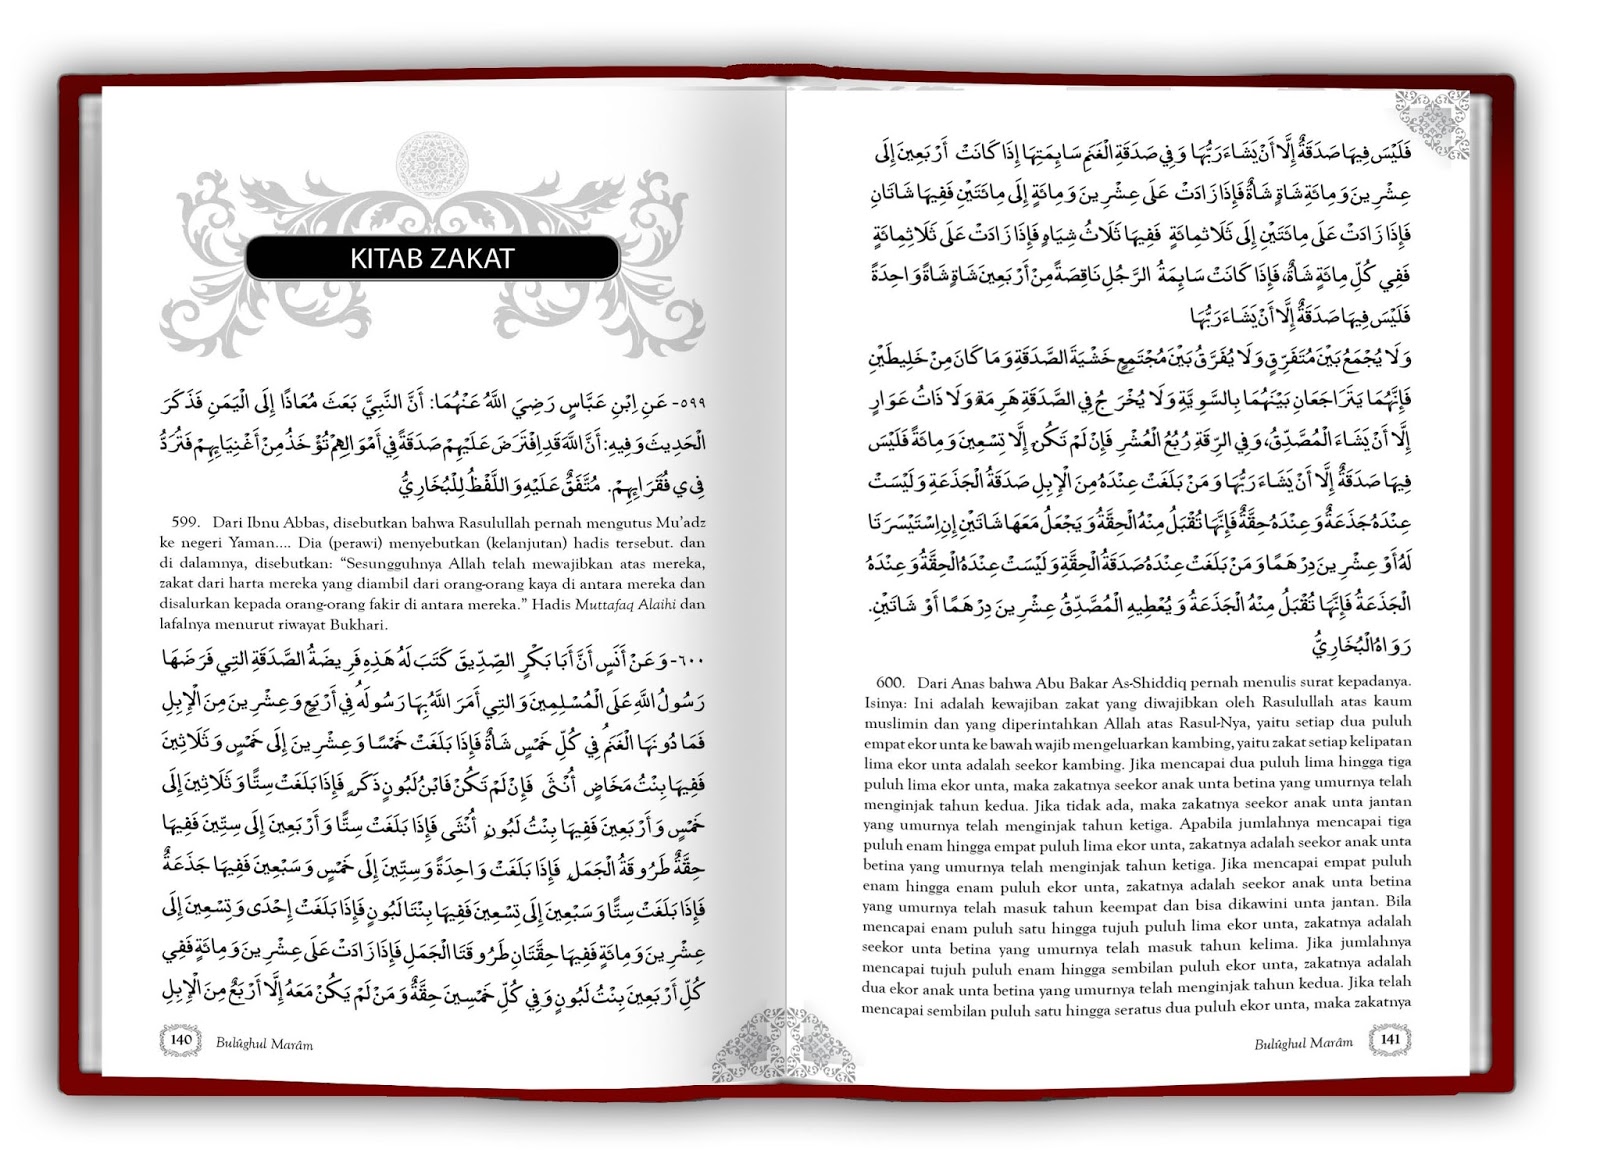 KITAB ZAKAT
٥٩٩- عَنِ اِبْنِ عَبَّاسٍ رَضِيَ اللَّهُ عَنْهُمَا: أَنَّ النَّبِيَّ بَعَثَ مُعَاذًا إِلَى الْيَمَنِ فَذَكَرَ
الْحَدِيثَ وَفِيهِ: أَنَّ اللَّهَ قَدِ افْتَرَضَ عَلَيْهِمْ صَدَقَةً فِي أَمْوَالِهِمْ تُؤْخَذُ مِنْ أَغْنِيَائِهِمْ فَتُرَدُّ
فِي فُقَرَائِهِمْ. مُتَّفَقٌ عَلَيْهِ وَاللَّفْظُ لِلْبُخَارِيِّ
599. Dari Ibnu Abbas, disebutkan bahwa Rasulullah pernah mengutus Mu'adz
ke negeri Yaman.... Dia (perawi) menyebutkan (kelanjutan) hadis tersebut. dan
di dalamnya, disebutkan: “Sesungguhnya Allah telah mewajibkan atas mereka,
zakat dari harta mereka yang diambil dari orang-orang kaya di antara mereka dan
disalurkan kepada orang-orang fakir di antara mereka.” Hadis Muttafaq Alaihi dan
lafalnya menurut riwayat Bukhari.
٦٠٠- وَعَنْ أَنَسٍ أَنَّ أَبَا بَكْرٍ الصِّدِّيقَ كَتَبَ لَهُ هَذِهِ فَرِيضَةُ الصَّدَقَةِ التِي فَرَضَهَا
رَسُولُ اللَّهِ عَلَى الْمُسْلِمِينَ وَالتِي أَمَرَ اللَّهُ بِهَا رَسُولَهُ فِي أَرْبَعٍ وَعِشْرِينَ مِنَ الْإِبِلِ
فَمَا دُونَهَا الْغَنَمُ فِي كُلِّ خَمْسٍ شَاةٌ فَإِذَا بَلَغَتْ خَمْسًا وَعِشْرِينَ إِلَى خَمْسٍ وَثَلَاثِينَ
فَفِيهَا بِنْتُ مَخَاضٍ أُنْثَى فَإِنْ لَمْ تَكُنْ فَابْنُ لَبُونٍ ذَكَرٍ فَإِذَا بَلَغَتْ سِتًّا وَثَلَاثِينَ إِلَى
خَمْسٍ وَأَرْبَعِينَ فَفِيهَا بِنْتُ لَبُونٍ أُنْثَى فَإِذَا بَلَغَتْ سِتًّا وَأَرْبَعِينَ إِلَى سِتِّينَ فَفِيهَا
حِقَّةٌ طَرُوقَةُ الْجَمَلِ فَإِذَا بَلَغَتْ وَاحِدَةً وَسِتِّينَ إِلَى خَمْسٍ وَسَبْعِينَ فَفِيهَا جَذَعَةٌ
فَإِذَا بَلَغَتْ سِتًّا وَسَبْعِينَ إِلَى تِسْعِينَ فَفِيهَا بِنْتَا لَبُونٍ فَإِذَا بَلَغَتْ إِحْدَى وَتِسْعِينَ إِلَى
عِشْرِينَ وَمِائَةٍ فَفِيهَا حِقَّتَانِ طَرُوقَتَا الْجَمَلِ فَإِذَا زَادَتْ عَلَى عِشْرِينَ وَمِائَةٍ فَفِي
كُلِّ أَرْبَعِينَ بِنْتُ لَبُونٍ وَفِي كُلِّ خَمْسِينَ حِقَّةٌ وَمَنْ لَمْ يَكُنْ مَعَهُ إِلَّا أَرْبَعٌ مِنَ الْإِبِلِ
140 Bulûghul Marâm
فَلَيْسَ فِيهَا صَدَقَةٌ إِلَّا أَنْ يَشَاءَ رَبُّهَا وَفِي صَدَقَةِ الْغَنَمِ سَايِمَتِهَا إِذَا كَانَتْ أَرْبَعِينَ إِلَى
عِشْرِينَ وَمِائَةِ شَاةٍ شَاةٌ فَإِذَا زَادَتْ عَلَى عِشْرِينَ وَمِائَةٍ إِلَى مِائَتَيْنِ فَفِيهَا شَاتَانِ
فَإِذَا زَادَتْ عَلَى مِائَتَيْنِ إِلَى ثَلَاثمِائَةٍ فَفِيهَا ثَلَاثُ شِيَاهٍ فَإِذَا زَادَتْ عَلَى ثَلَاثِمِائَةٍ
فَفِي كُلِّ مِائَةٍ شَاةٌ، فَإِذَا كَانَتْ سَايِمَةُ الرَّجُلِ نَاقِصَةً مِنْ أَرْبَعِينَ شَاةٍ شَاةً وَاحِدَةً
فَلَيْسَ فِيهَا صَدَقَةٌ إِلَّا أَنْ يَشَاءَ رَبُّهَا
وَلَا يُجْمَعُ بَيْنَ مُتَفَرِّقٍ وَلَا يُفَرَّقُ بَيْنَ مُجْتَمِعٍ خَشْيَةَ الصَّدَقَةِ وَمَا كَانَ مِنْ خَلِيطَيْنِ
فَإِنَّهُمَا يَتَرَاجَعَانِ بَيْنَهُمَا بِالسَّوِيَّةِ وَلَا يُخْرَجُ فِي الصَّدَقَةِ هَرِمَةٌ وَلَا ذَاتُ عَوَارٍ
إِلَّا أَنْ يَشَاءَ الْمُصَّدِّقُ، وَفِي الرِّقَةِ رُبُعُ الْعُشْرِ فَإِنْ لَمْ تَكُنْ إِلَّا تِسْعِينَ وَمِائَةً فَلَيْسَ
فِيهَا صَدَقَةٌ إِلَّا أَنْ يَشَاءَ رَبُّهَا وَمَنْ بَلَغَتْ عِنْدَهُ مِنَ الْإِبِلِ صَدَقَةُ الْجَذَعَةِ وَلَيْسَتْ
عِنْدَهُ جَذَعَةٌ وَعِنْدَهُ حِقَّةٌ فَإِنَّهَا تُقْبَلُ مِنْهُ الْحِقَّةُ وَيَجْعَلُ مَعَهَا شَاتَيْنِ إِنِ اسْتَيْسَرَتَا
لَهُ أَوْ عِشْرِينَ دِرْهَمًا وَمَنْ بَلَغَتْ عِنْدَهُ صَدَقَةُ الْحِقَّةِ وَلَيْسَتْ عِنْدَهُ الْحِقَّةُ وَعِنْدَهُ
الْجَذَعَةُ فَإِنَّهَا تُقْبَلُ مِنْهُ الْجَذَعَةُ وَيُعْطِيهِ الْمُصَّدِّقُ عِشْرِينَ دِرْهَمًا أَوْ شَاتَيْنِ.
رَوَاهُ الْبُخَارِيُّ
600. Dari Anas bahwa Abu Bakar As-Shiddiq pernah menulis surat kepadanya.
Isinya: Ini adalah kewajiban zakat yang diwajibkan oleh Rasulullah atas kaum
muslimin dan yang diperintahkan Allah atas Rasul-Nya, yaitu setiap dua puluh
empat ekor unta ke bawah wajib mengeluarkan kambing, yaitu zakat setiap kelipatan
lima ekor unta adalah seekor kambing. Jika mencapai dua puluh lima hingga tiga
puluh lima ekor unta, maka zakatnya seekor anak unta betina yang umurnya telah
menginjak tahun kedua. Jika tidak ada, maka zakatnya seekor anak unta jantan
yang umurnya telah menginjak tahun ketiga. Apabila jumlahnya mencapai tiga
puluh enam hingga empat puluh lima ekor unta, zakatnya adalah seekor anak unta
betina yang umurnya telah menginjak tahun ketiga. Jika mencapai empat puluh
enam hingga enam puluh ekor unta, zakatnya adalah seekor anak unta betina
yang umurnya telah masuk tahun keempat dan bisa dikawini unta jantan. Bila
mencapai enam puluh satu hingga tujuh puluh lima ekor unta, zakatnya adalah
seekor unta betina yang umurnya telah masuk tahun kelima. Jika jumlahnya
mencapai tujuh puluh enam hingga sembilan puluh ekor unta, zakatnya adalah
dua ekor anak unta betina yang umurnya telah menginjak tahun kedua. Jika telah
mencapai sembilan puluh satu hingga seratus dua puluh ekor unta, maka zakatnya
Bulûghul Marâm 141